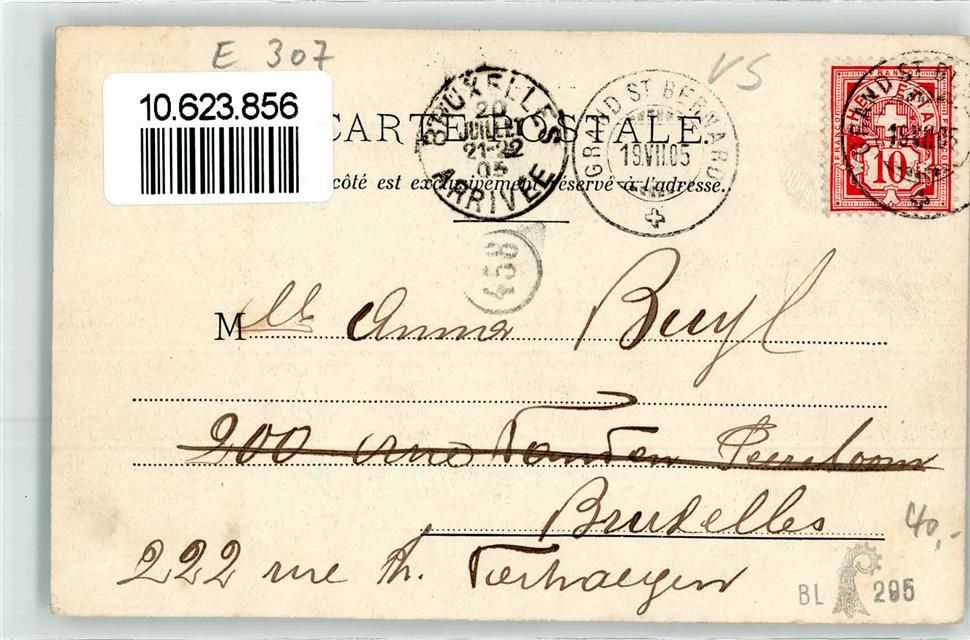 E 307
VS
10.623.856
CARTE POSTALE.
côté est exclusivement réservé à l'adresse.
BRUXELLES
20
JUILLET
21-22
05
ARRIVÉE
GRAND ST BERNARD
19.VII.05
GRAND ST BE
19.VII.05
FRANCO
HELVETIA
10
458
Mlle Anna Buyl
200 rue Vanden Peereboom
Bruxelles
40,-
222 rue Th. Verhaegen
BL 295